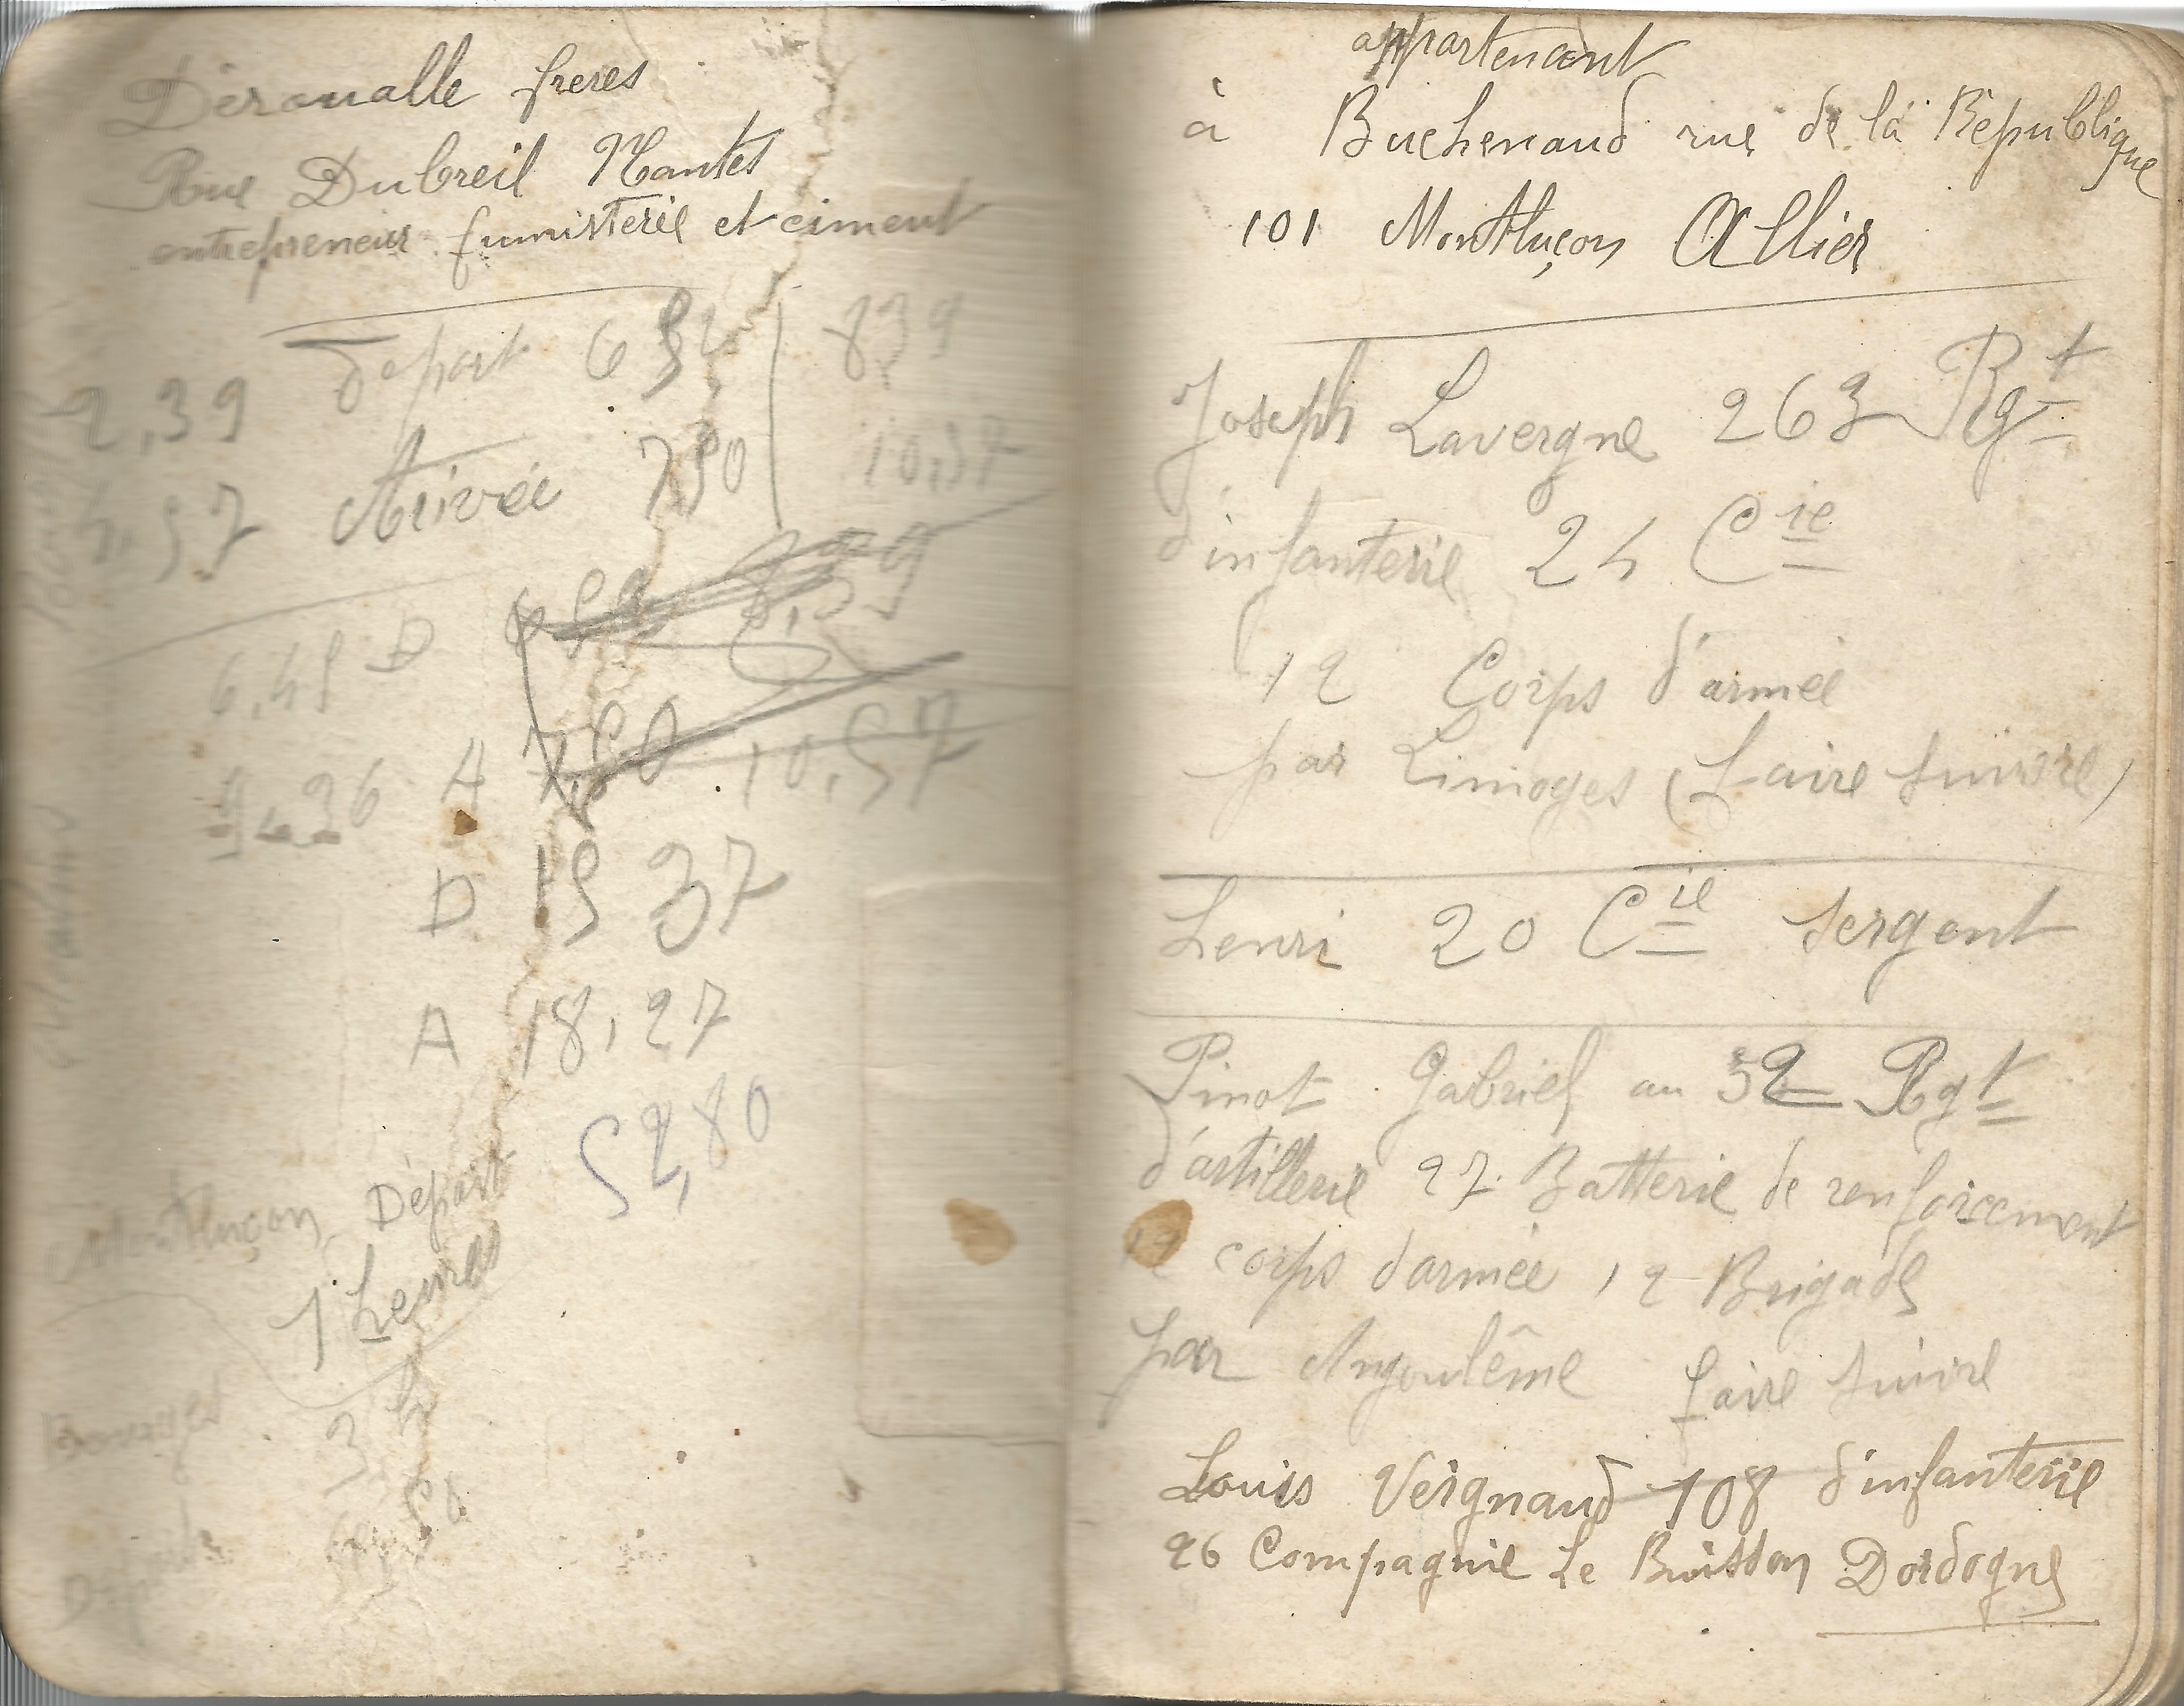 Deroualle freres
Rue Dubreil Nantes
entrepreneur fumisterie et ciment
2,39 depart 6 52 8,39
4,57 Arivée 7 50 10,57
6,45 D 8,39
9,36 A 7,50 10,57
D 15 37
A 18,27
52,80
Montluçon Départ
1 heures
Bourges 3 h
Départ
appartenant
à Buchenaud rue de la Republique
101 Montluçon Allier
Joseph Lavergne 263 Rgt
d'infanterie 24 Cie
12 Corps d'armée
par Limoges (faire suivre)
Henri 20 Cie sergent
Pinot Gabriel au 52 Rgt
d'artillerie 27 Batterie de renforcement
corps d'armée 12 Brigade
par Angoulême faire suivre
Louis Vergnaud 108 d'infanterie
26 Compagnie Le Buisson Dordogne